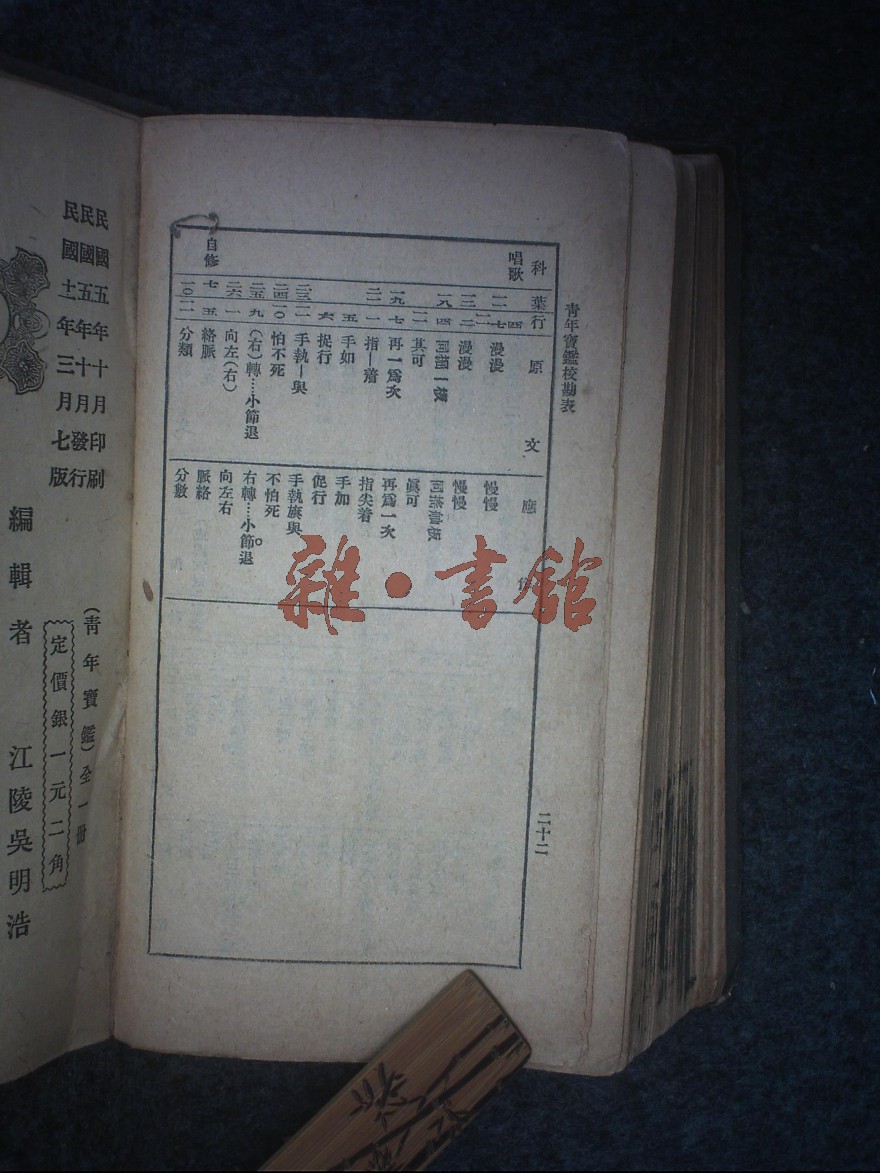 青年寶鑑校勘表
二十二
科 葉 行 原文 應作
唱歌
漫漫 慢慢
漫漫 慢慢
其可 眞可
一九 七 再一爲次 再爲一次
指—着 指尖着
五 手如 手加
六 捉行 促行
手執—與 手執旗與
二四 一〇 怕不死 不怕死
二五 九 (右)轉……小節退 右轉……小節。退
二六 一 向左(右) 向左右
自修 七 五 絡脈 脈絡
分類 分數
雜·書館
民國五年十月印刷
民國五年十月發行
民國十一年三月七版
(青年寶鑑)全一冊
定價銀一元二角
編輯者 江陵吳明浩